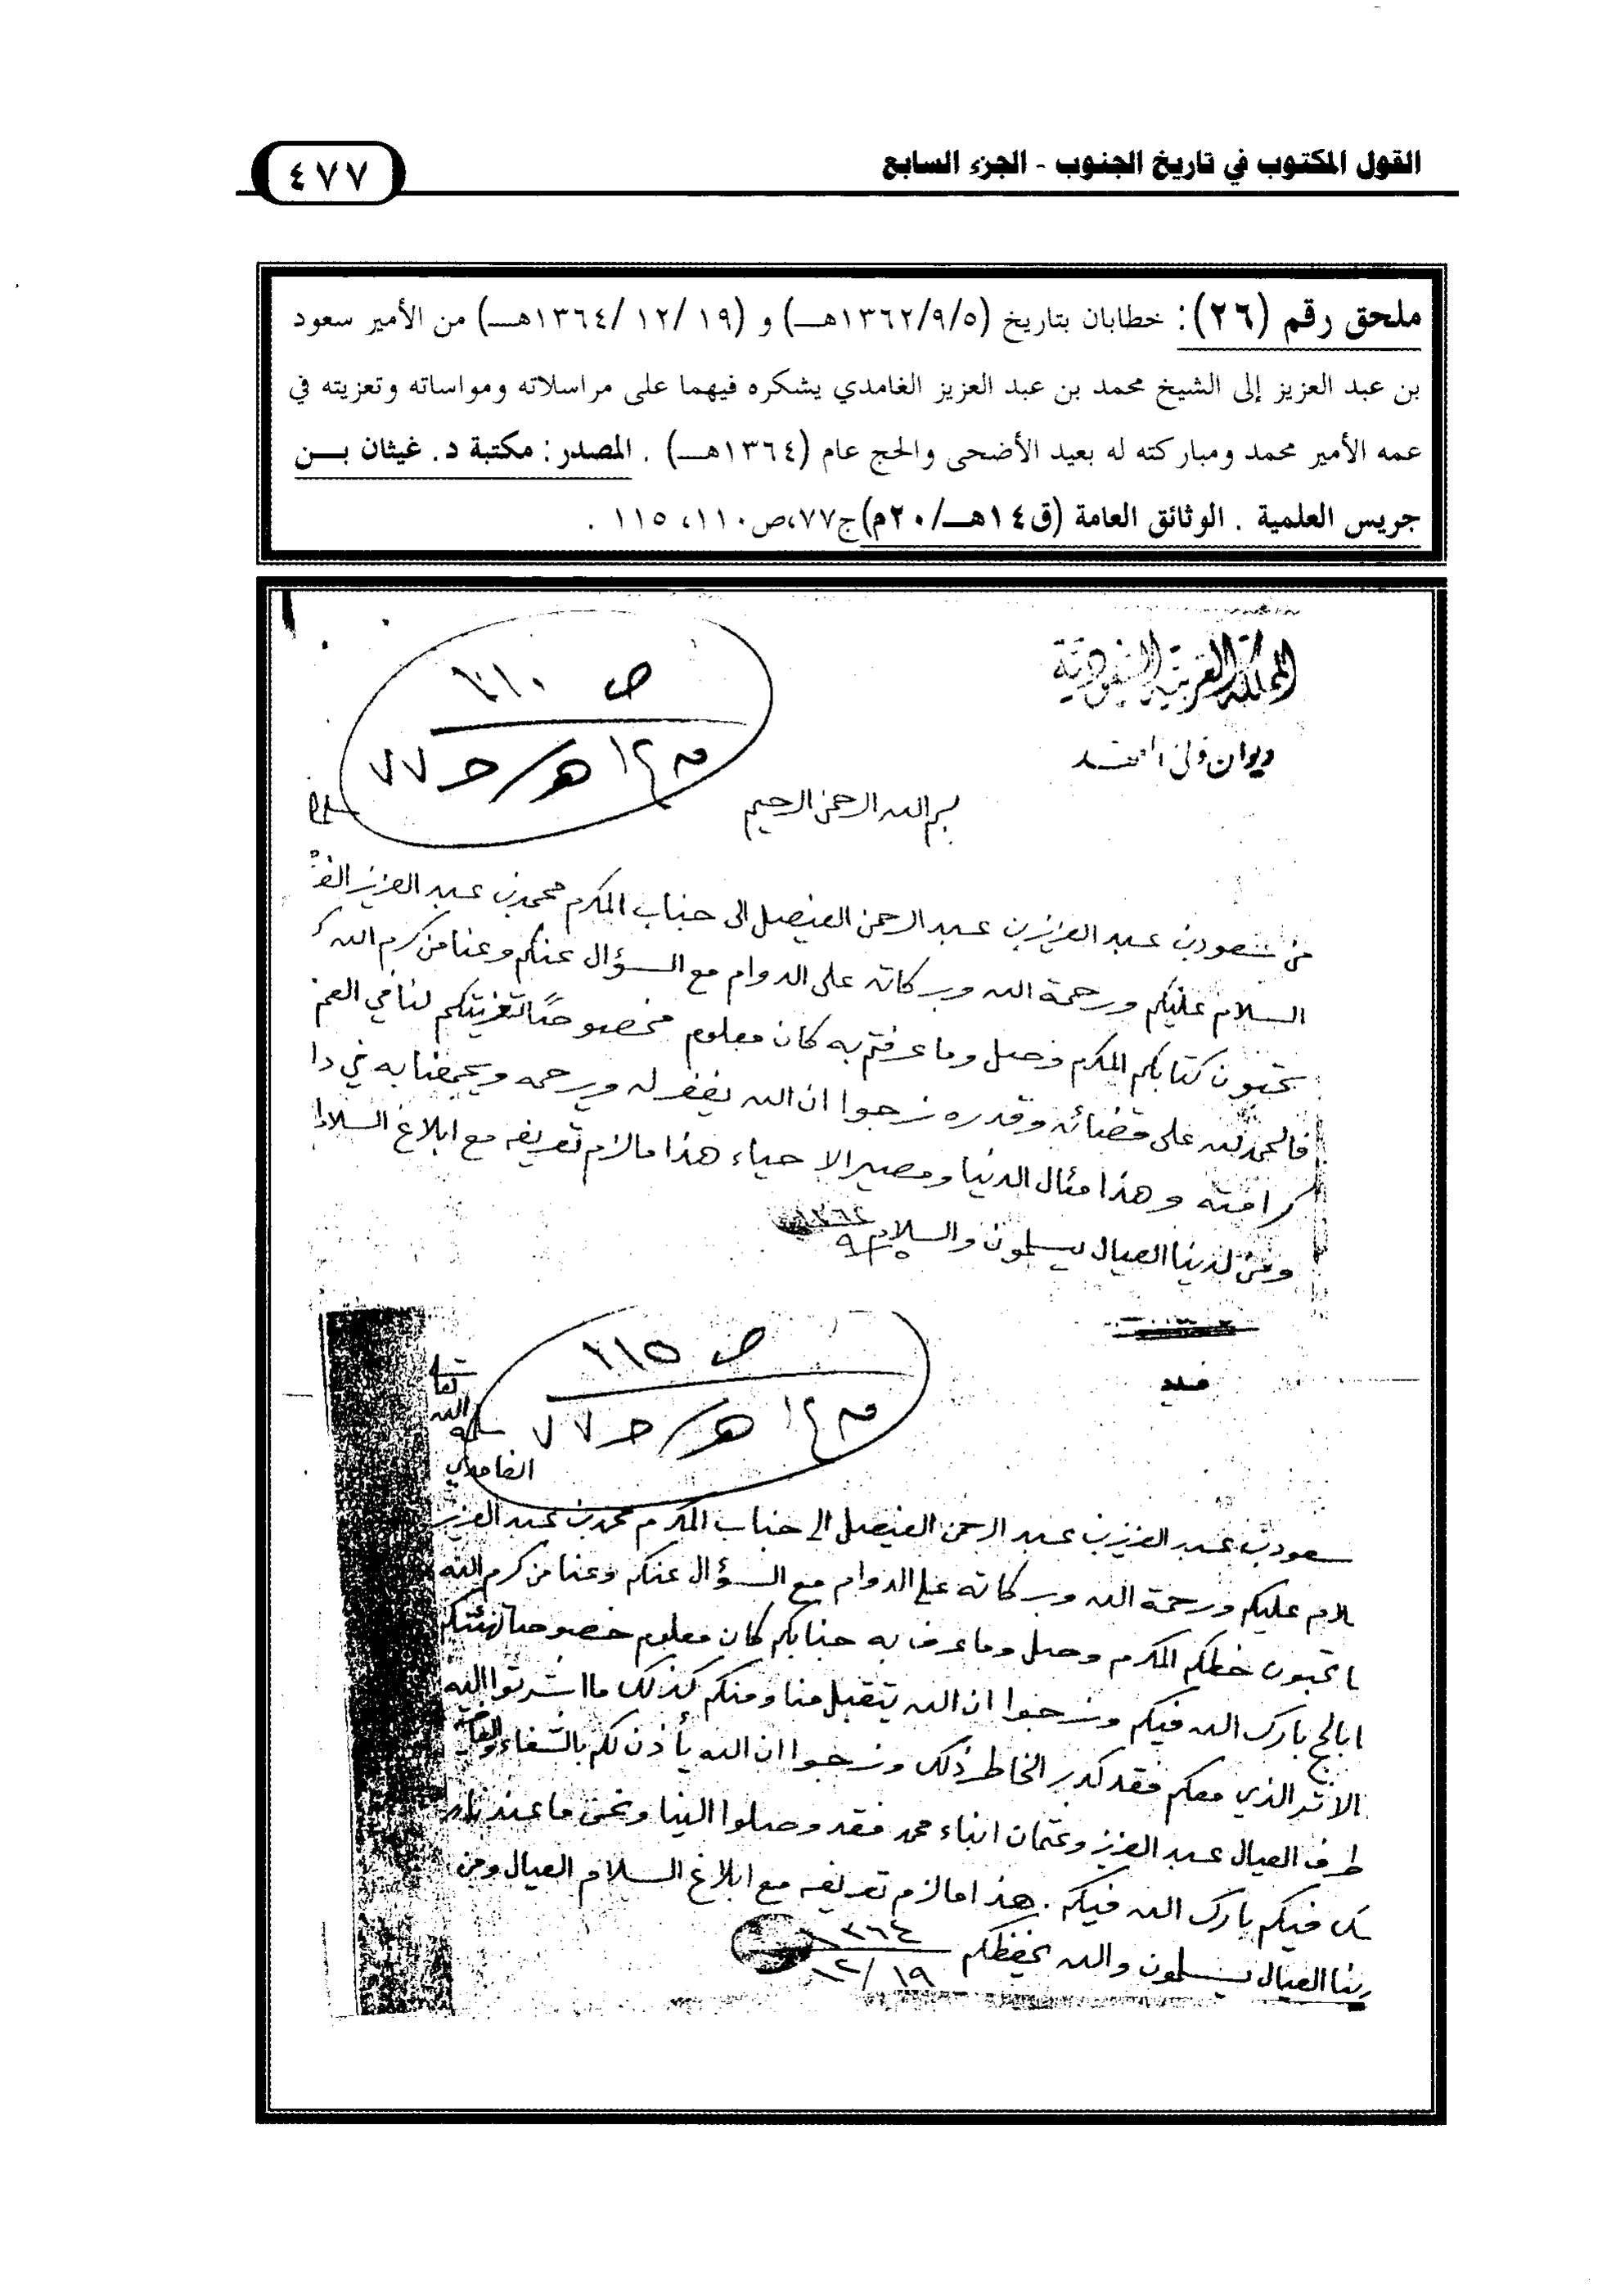 القول المكتوب في تاريخ الجنوب - الجزء السابع
٤٧٧
ملحق رقم (٢٦): خطابان بتاريخ (١٣٦٢/٩/٥هـ) و (١٣٦٤/١٢/١٩هـ) من الأمير سعود
بن عبد العزيز إلى الشيخ محمد بن عبد العزيز الغامدي يشكره فيهما على مراسلاته ومواساته وتعزيته في
عمه الأمير محمد ومباركته له بعيد الأضحى والحج عام (١٣٦٤هـ) . المصدر: مكتبة د. غيثان بن
جريس العلمية . الوثائق العامة (ق١٤هـ/٢٠م)ج٧٧،ص١١٠، ١١٥ .
المملكة العربية السعودية
ديوان ولي
ص ١١٠
ق ١٤ هـ/ ج ٧٧
بسم الله الرحمن الرحيم
من سعود بن عبد العزيز بن عبد الرحمن الفيصل الى جناب المكرم محمد بن عبد العزيز
السلام عليكم ورحمة الله وبركاته على الدوام مع السؤال عنكم وعنا من كرم الله
تحبون كتابكم المكرم وصل وما عرفتم به كان معلوم مخصوصاً تعزيتكم لنا في العم
فالحمد لله على قضائه وقدره نرجوا ان الله يغفر له ويرحمه ويجمعنا به في دا
كرامته وهذا مثال الدنيا ومصير الاحياء هذا ما لزم تعريفه مع ابلاغ السلام
ومن لدينا العيال يسلمون والسلام
١٣٦٢
٩/٥
ص ١١٥
ق ١٤ هـ/ ج ٧٧
الله
الغامدي
سعود بن عبد العزيز بن عبد الرحمن الفيصل الى جناب المكرم محمد بن عبد العزيز
لام عليكم ورحمة الله وبركاته على الدوام مع السؤال عنكم وعنا من كرم الله
ا تحبون خطكم المكرم وصل وما عرف به جنابكم كان معلوم خصوصا تهنئتكم
ا بالحج بارك الله فيكم ونرجوا ان الله يتقبل منا ومنكم كذلك ما اشرتوا اليه
الاثر الذي معكم فقد كدر الخاطر ذلك ونرجوا ان الله يأذن لكم بالشفاء
طرف العيال عبد العزيز وعثمان ابناء محمد فقد وصلوا الينا ونحن ما عندنا
فيكم بارك الله فيكم . هذا ما لزم تعريفه مع ابلاغ السلام العيال ومن
العيال يسلمون والله يحفظكم
١٣٦٤
١٢/١٩